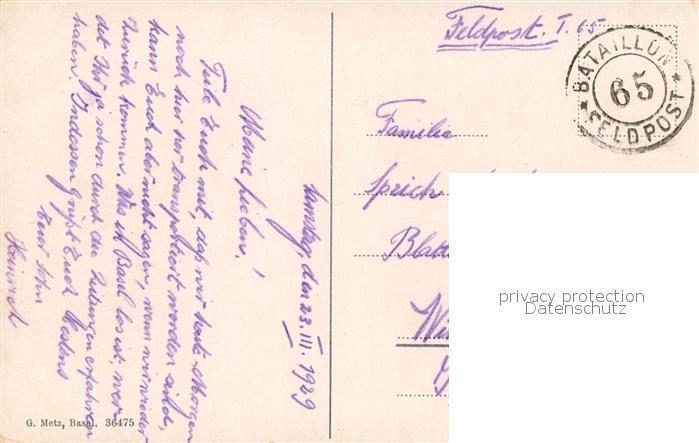 Feldpost. I. 65
BATAILLON
65
FELDPOST
Familie
Speich
Blatt
Samstag, den 23. III. 1929
Meine Lieben!
Teile Euch mit, dass wir heute Morgen
noch hier her transportiert worden sind,
kann Euch aber nicht sagen, wenn wir wieder
zurück kommen. Was ist Basel los ist, wer-
det Ihr ja schon durch die Zeitungen erfahren
haben. Indessen grüsst Euch bestens
Euer Sohn
Heinrich
G. Metz, Basel. 36475
privacy protection
Datenschutz